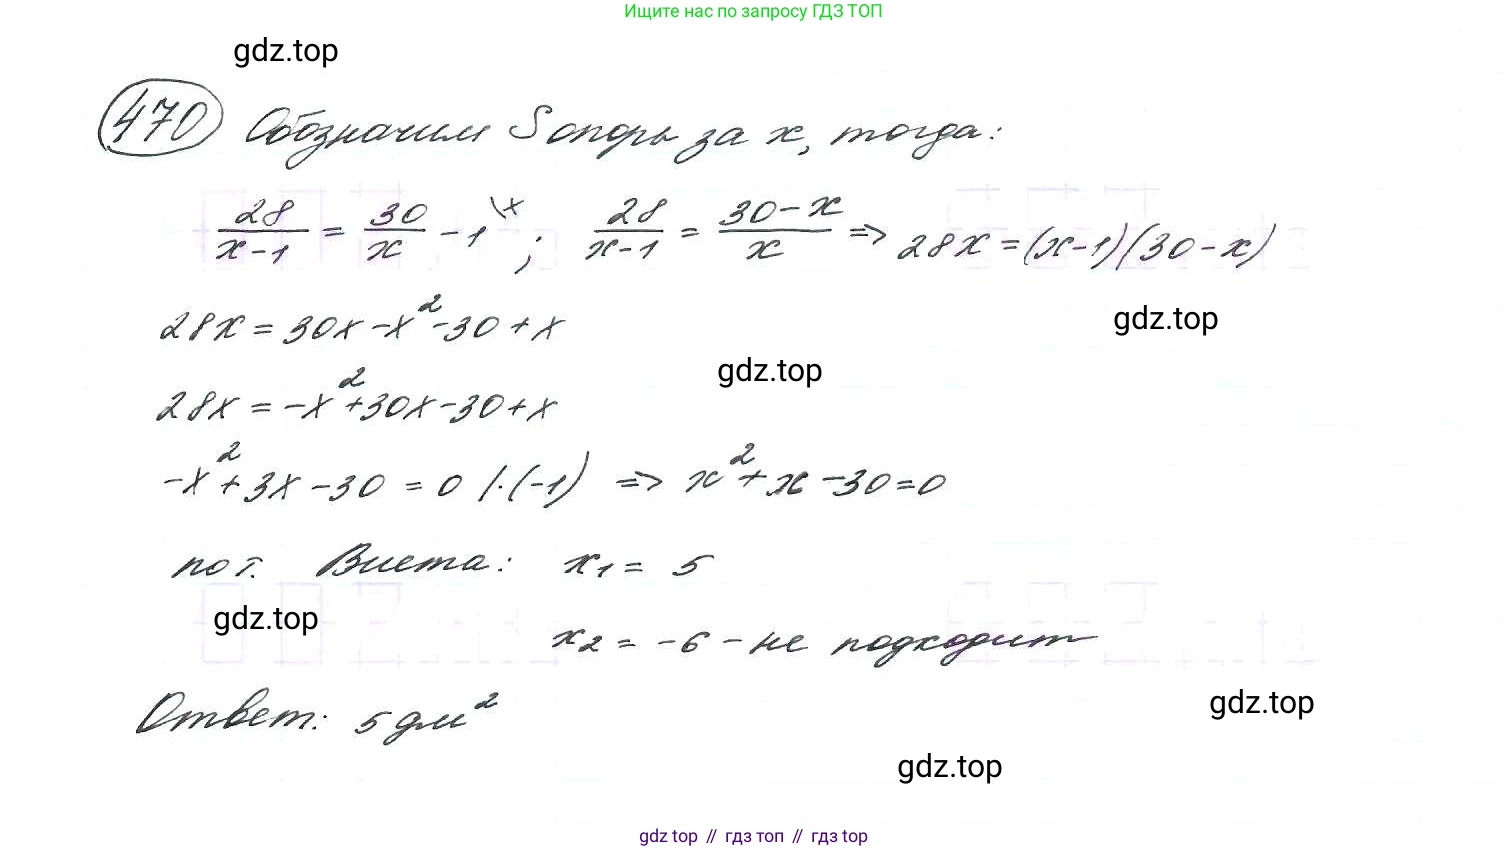 Ищите нас по запросу ГДЗ ТОП
gdz.top
470 Обозначим S опоры за x, тогда:
28/(x-1) = 30/x - 1 \x ; 28/(x-1) = (30-x)/x => 28x = (x-1)(30-x)
28x = 30x - x² - 30 + x
gdz.top
gdz.top
28x = -x² + 30x - 30 + x
-x² + 3x - 30 = 0 /·(-1) => x² + x - 30 = 0
по т. Виета: x₁ = 5
gdz.top
x₂ = -6 - не подходит
Ответ: 5 дм²
gdz.top
gdz.top
gdz top // гдз топ // гдз top